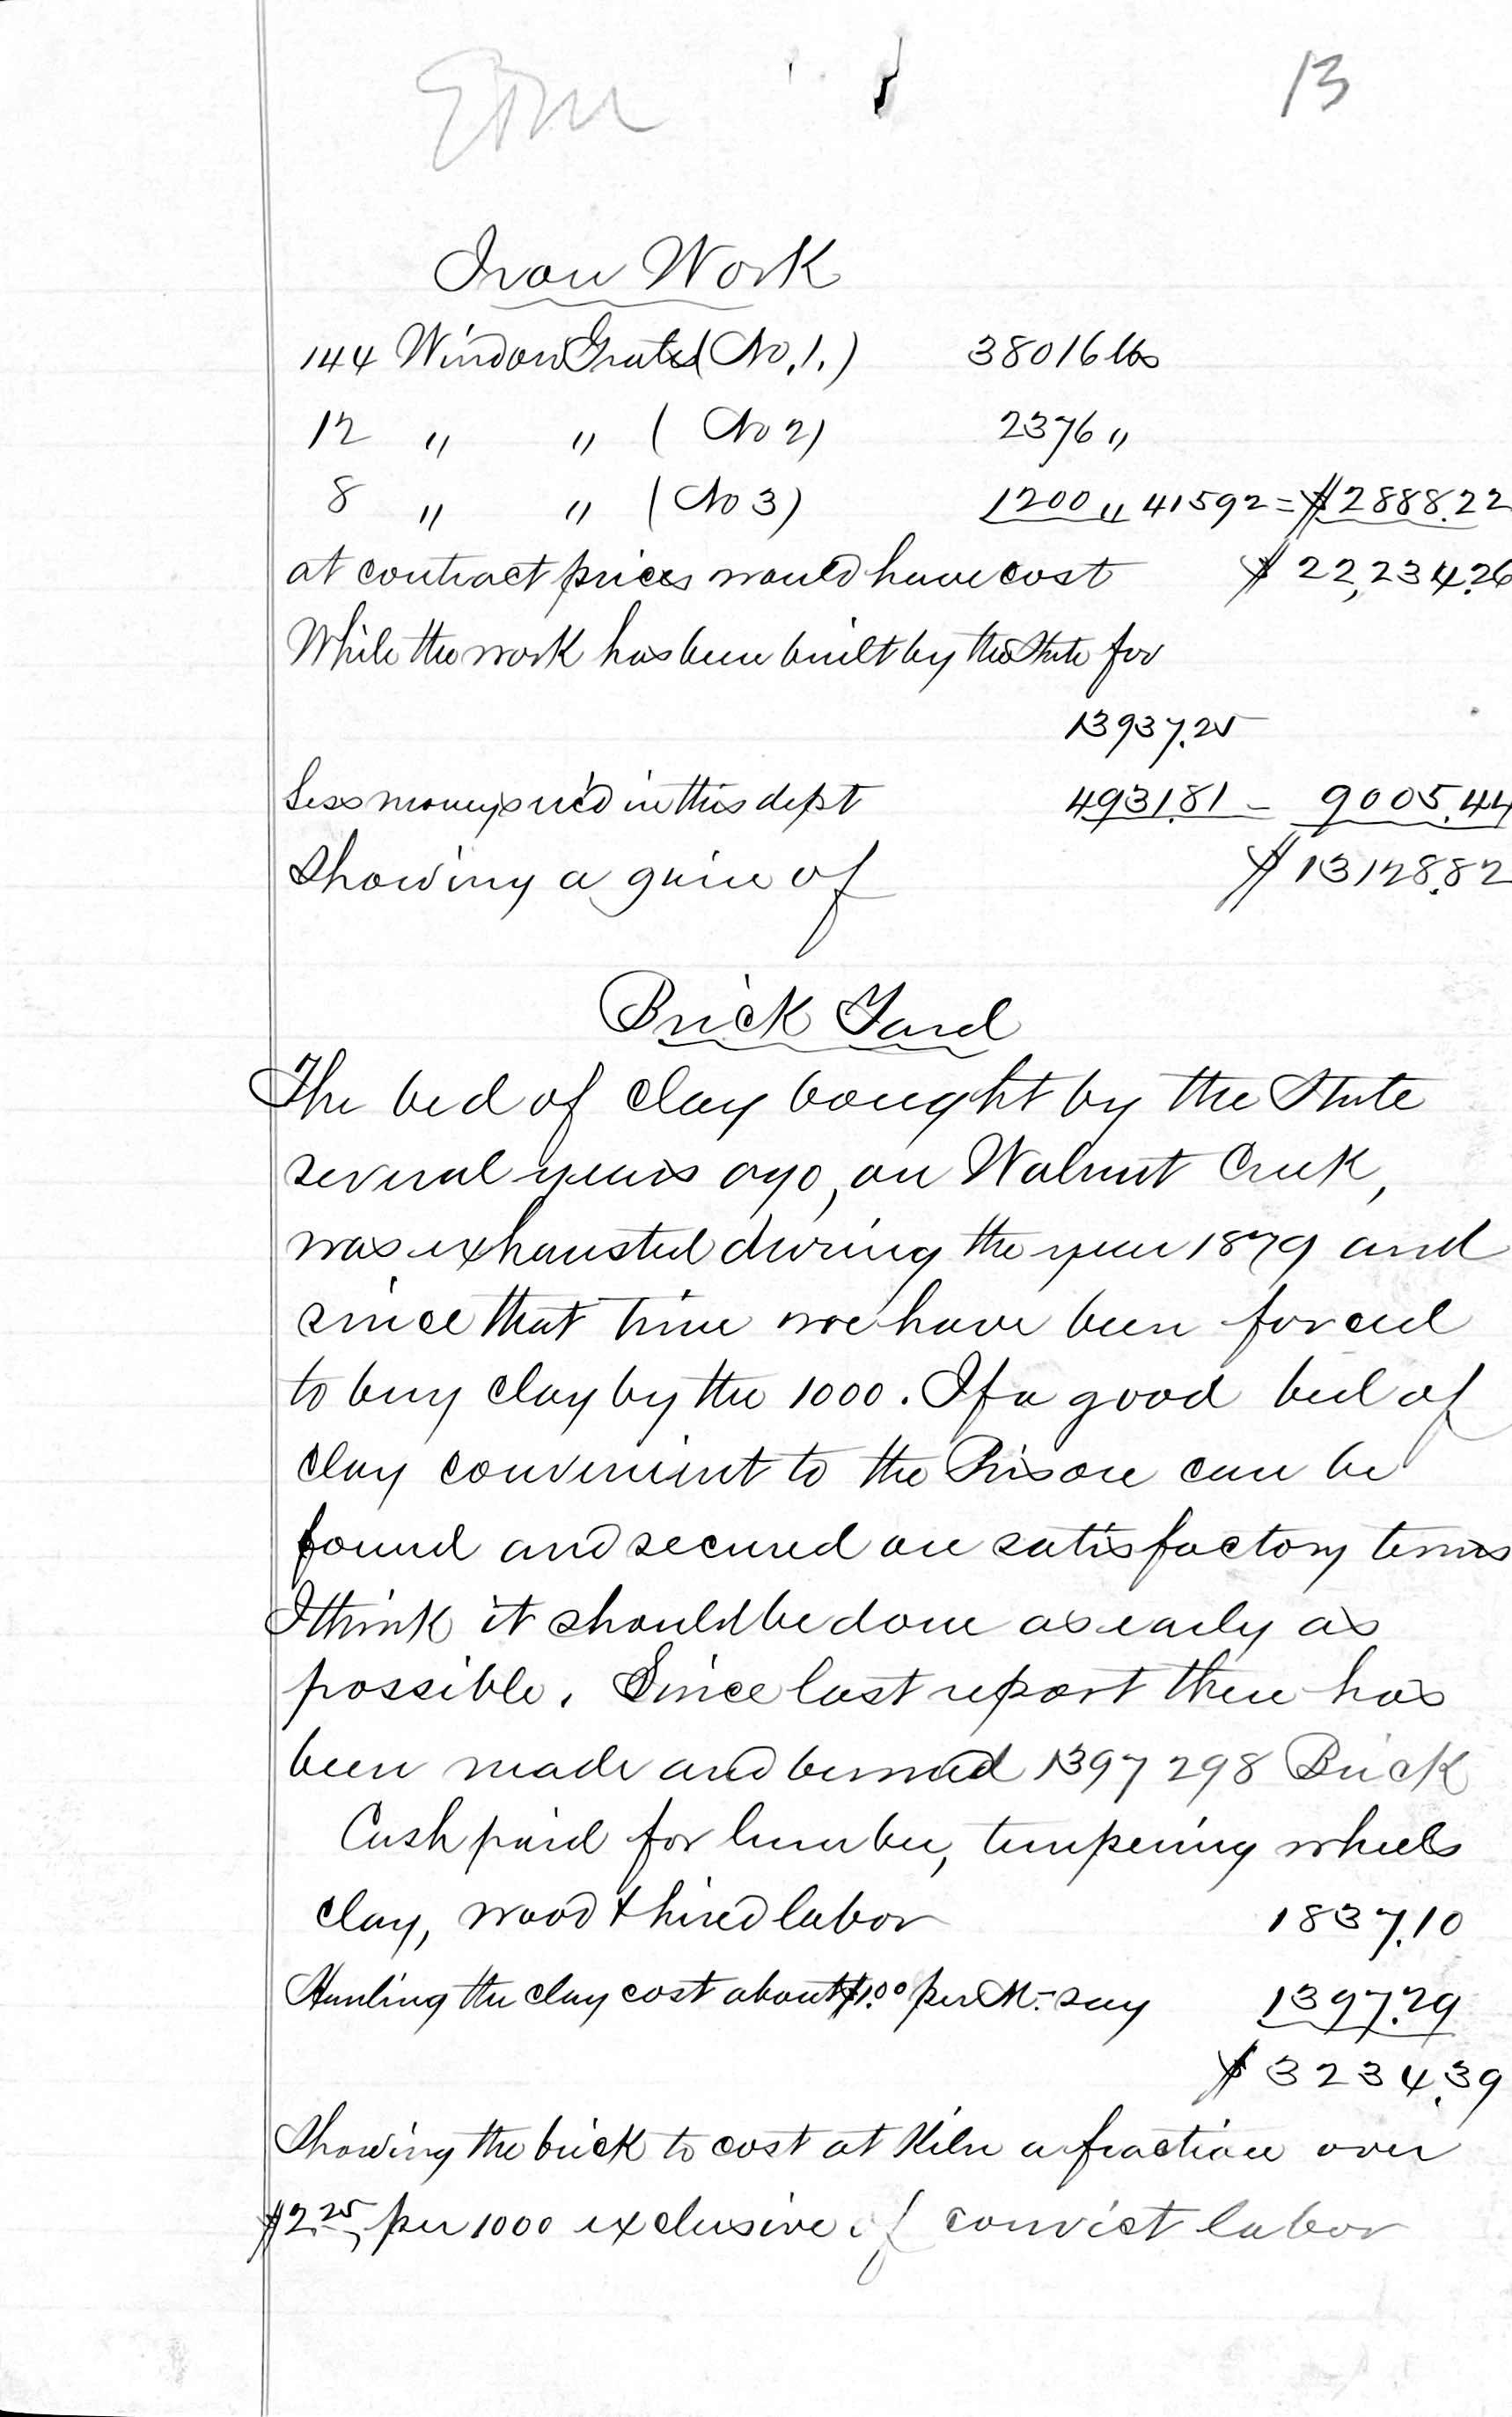 13
Iron Work
144 Window Grates (No. 1.) 38016 lbs
12 " " (No 2) 2376 "
8 " " (No 3) 1200 " 41592 = $2888.22
at contract prices would have cost $22,234.26
While the work has been built by the State for
13937.25
Less moneys rec'd in this dept 4931.81 – 9005.44
Showing a gain of $13128.82
Brick Yard
The bed of clay bought by the State
several years ago, on Walnut Creek,
was exhausted during the year 1879 and
since that time we have been forced
to buy clay by the 1000. If a good bed of
clay convenient to the Prison can be
found and secured on satisfactory terms
I think it should be done as early as
possible. Since last report there has
been made and burned 1397298 Brick
Cash paid for lumber, tempering wheels
clay, wood & hired labor 1837.10
Hauling the clay cost about $1.00 per M- say 1397.29
$3234.39
Showing the brick to cost at Kiln a fraction over
$2.25, per 1000 exclusive of convict labor